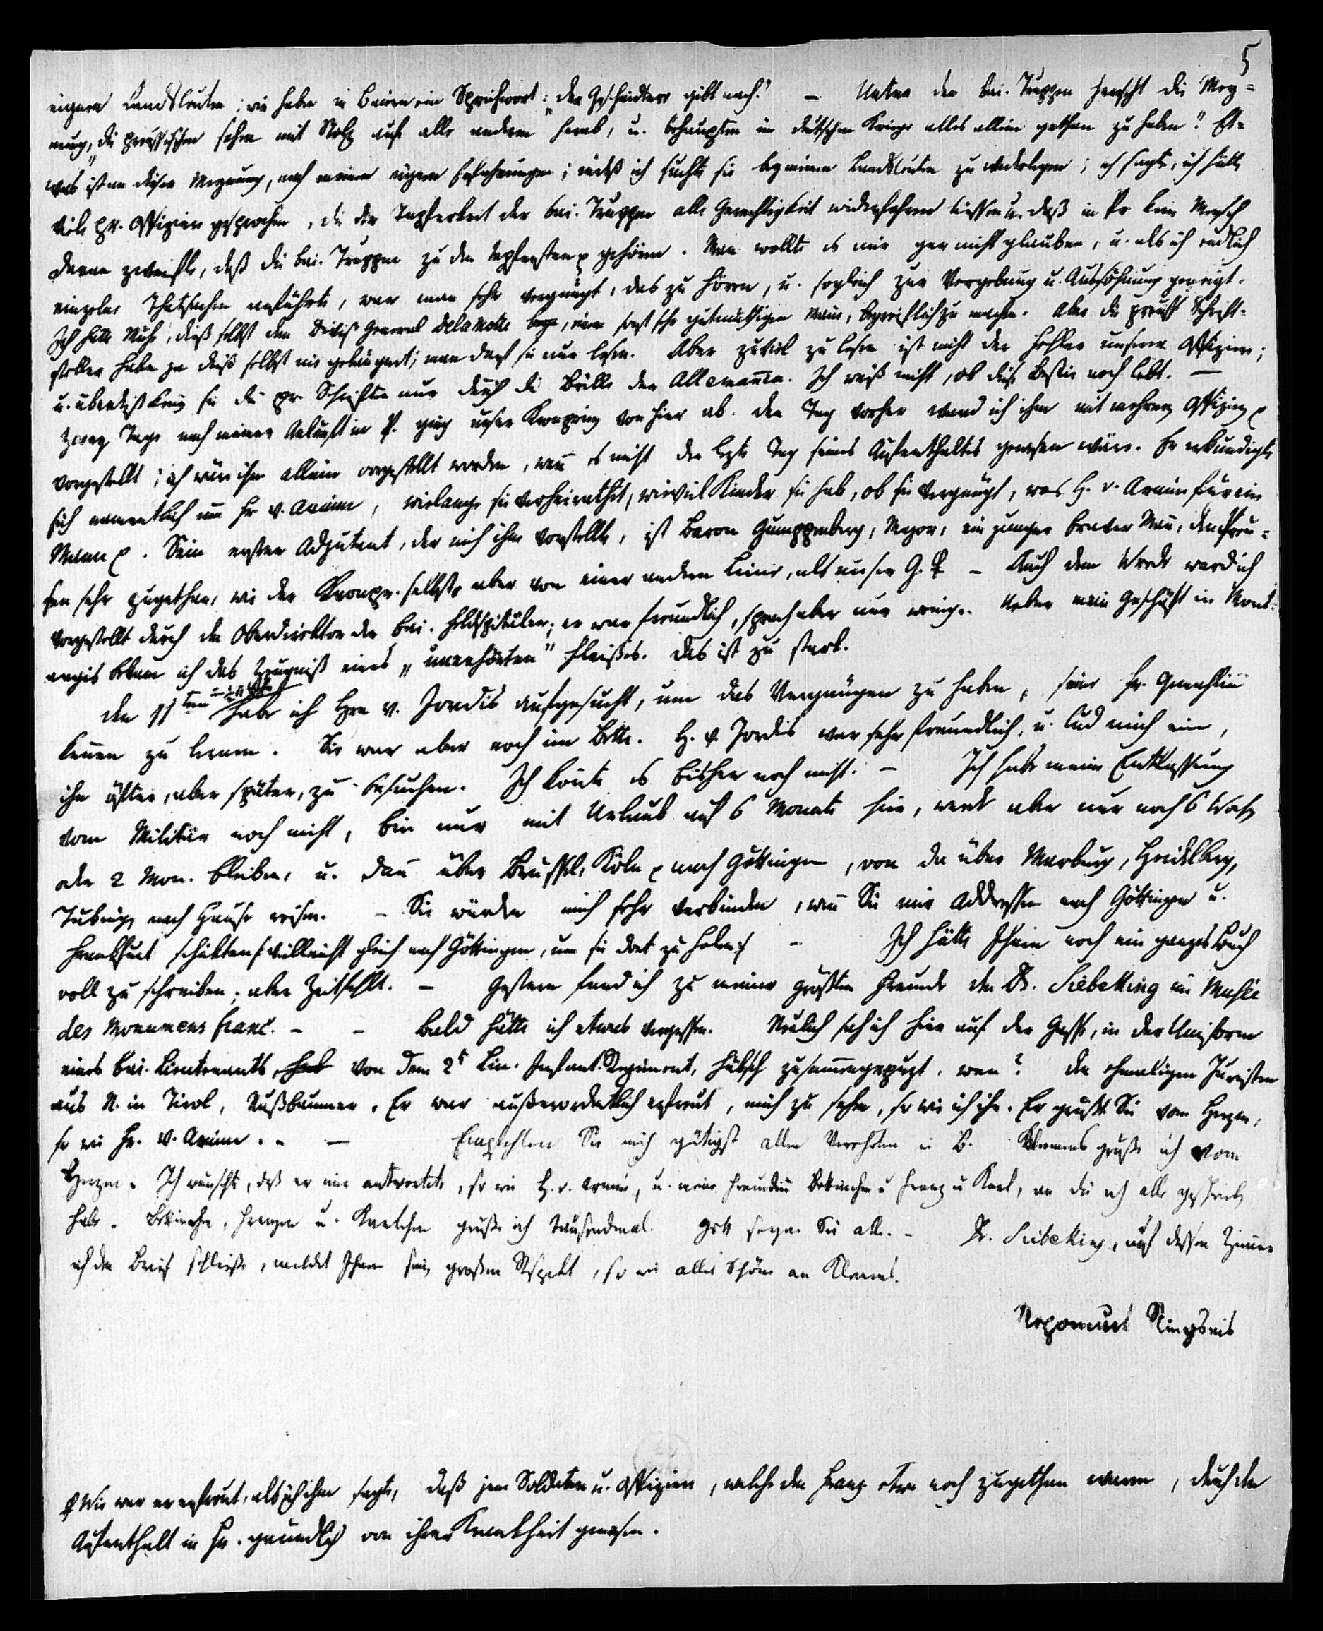 5
eigenen Landsleuten; wir haben in Baiern ein Sprüchwort: „der Gescheidtere gibt nach.“ — Unter den bai. Truppen herrscht die Mey-
nung, „die preussischen sehen mit Stolz auf alle andern herab, u. behaupten im deutschen Kriege alles allein gethan zu haben“. Et-
was ist an dieser Meynung, nach meinen eigenen Erfahrungen; indeß ich suchte sie bey meinen Landsleuten zu widerlegen; ich sagte, ich hätte
viele pr. Offiziere gesprochen, die der Tapferkeit der bai. Truppen alle Gerechtigkeit widerfahren liessen u. daß in Pr. kein Mensch
daran zweifle, daß die bai. Truppen zu den tapfersten gehören. Man wollte es mir gar nicht glauben, u. als ich endlich
einzelne Thatsachen anführte, war man sehr vergnügt, das zu hören, u. sogleich zur Vergebung u. Aussöhnung geneigt.
Ich hatte Mühe, dieß selbst dem Divis. General Delamotte, einem sonst sehr gutmüthigen Mann, begreiflich zu machen. Aber die preuss. Schrift-
steller haben ja dieß selbst nie geläugnet; man darf sie nur lesen. Aber zuviel zu lesen ist nicht der Fehler unserer Offiziere;
u. überdieß lesen sie die pr. Schriften nur durch die Brille der Allemannia. Ich weiß nicht, ob diese Bestie noch lebt. —
Zwey Tage nach meiner Ankunft in P. ging unser Kronprinz von hier ab. Den Tag vorher ward ich ihm mit mehrern Offizieren
vorgestellt; ich wäre ihm allein vorgestellt worden, wenn es nicht der letzte Tag seines Aufenthaltes gewesen wäre. Er erkundigte
sich namentlich um Fr. v. Arnim, wielange sie verheirathet, wieviel Kinder sie hab, ob sie vergnügt, was H. v. Arnim für ein
Mann. Sein erster Adjutant, der mich ihm vorstellte, ist Baron Gumppenberg, Major, ein junger braver Mann, den Preu-
ßen sehr zugethan, wie der Kronpr. selbst, aber von einer andern Linie, als unser G. ₽ — Auch dem Wrede ward ich
vorgestellt durch den Oberdirektor der bai. Feldspitäler; er war freundlich, sprach aber nur wenig. Ueber mein Geschäft in
bekam ich das Zeugniß eines „unerhörten“ Fleißes. Das ist zu stark.
Den habe ich Hrn v. Jordis aufgesucht, um das Vergnügen zu haben, seine Fr. Gemahlin
kennen zu lernen. Sie war aber noch im Bette. H. v. Jordis war sehr freundlich, u. lud mich ein,
ihn öfter, aber später, zu besuchen. Ich konnte es bisher noch nicht. — Ich habe meine Entlassung
vom Militär noch nicht, bin nur mit Urlaub auf 6 Monate hier, werde aber nur noch 6 Woch.
oder 2 Mon. bleiben, u. dann über Brüssel, Köln nach Göttingen, von da über Marburg, Heidelberg,
Tübingen nach Hause reisen. — Sie würden mich sehr verbinden, wenn Sie mir Addressen nach Göttingen u.
Frankfurt schikten (vielleicht gleich nach Göttingen, um sie dort zu holen) — Ich hätte Ihnen noch ein ganzes Buch
voll zu schreiben; aber Zeit fehlt. — Gestern fand ich zu meiner größten Freude den Dr. Siebeking im Musée
des Monumens franc. — — Bald hätte ich etwas vergessen. Neulich sah ich hier auf der Gasse, in der Uniform
eines bai. Lieutenants von dem 2t Lin. Infant. Regiment, hübsch zusammengeputzt, wen? den ehmaligen Juristen
aus N. in Tirol, Nußbaumer. Er war außerordentlich erfreut, mich zu sehn, so wie ich ihn. Er grüßt Sie von Herzen,
so wie Fr. v. Arnim. — — Empfehlen Sie mich gütigst allen Verehrten in B. Klemens grüße ich von
Herzen. Ich wünschte, daß er mir antwortete, so wie H. v. Arnim, u. meine Freundin u. Franz u. Karl, an die ich alle geschrieben
habe. grüße ich tausendmal. Gott segne Sie alle. — Dr. Siebeking, auf dessen Zimmer
ich den Brief schließe, meldet Ihnen seinen großen Respekt, so wie alles Schöne an Klemens.
Nepomuck Ringseis
₽ Wie war er erfreut, als ich ihm sagte, daß jene Soldaten u. Offiziere, welche den Franz. etwa noch zugethan waren, durch den
Aufenthalt in Fr. gründlich von ihrer Krankheit genesen.